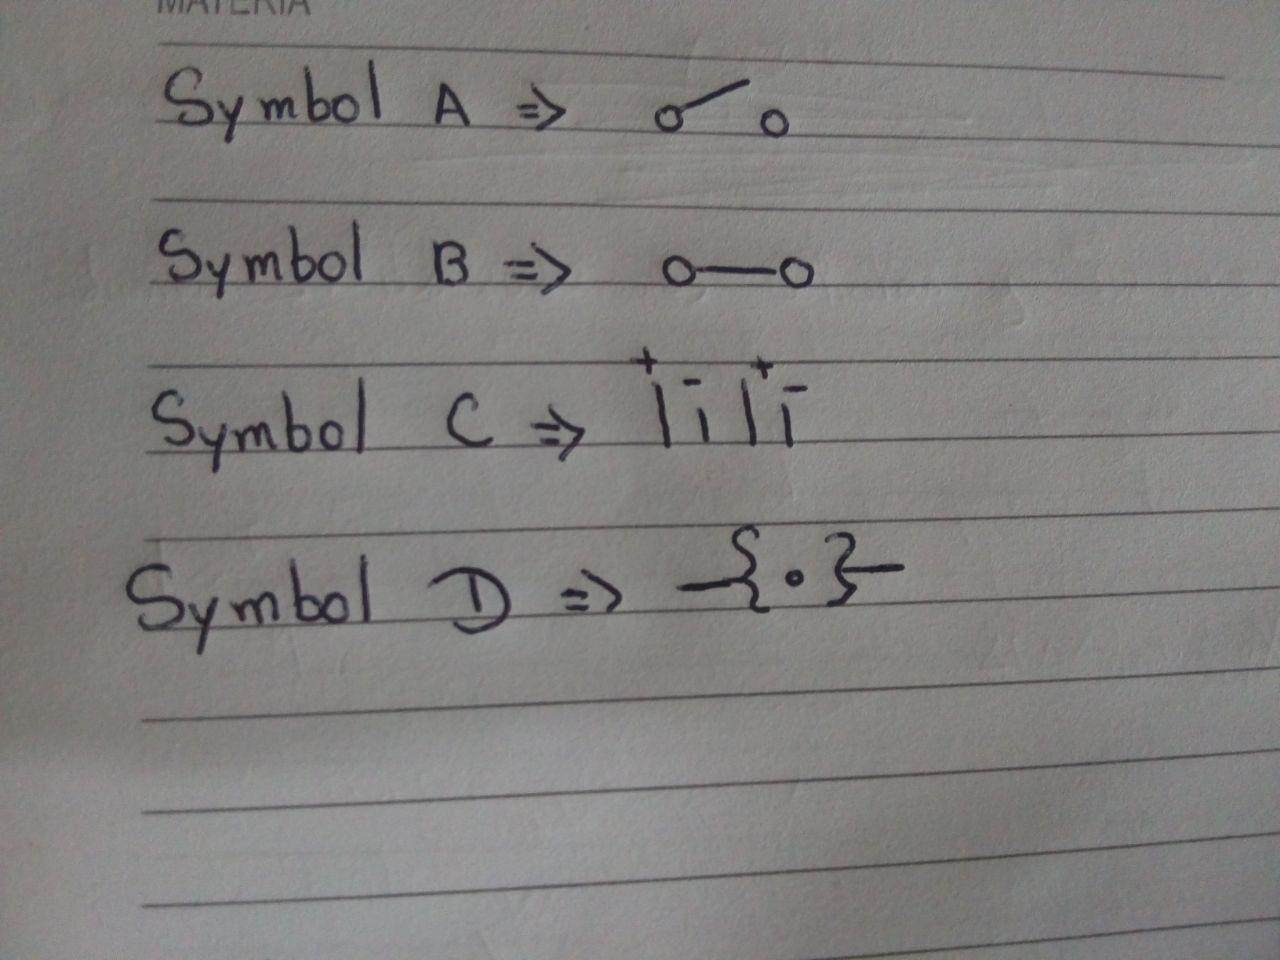 MATERIA
Symbol A =>
Symbol B =>
Symbol C => + - + -
Symbol D => -{.}-